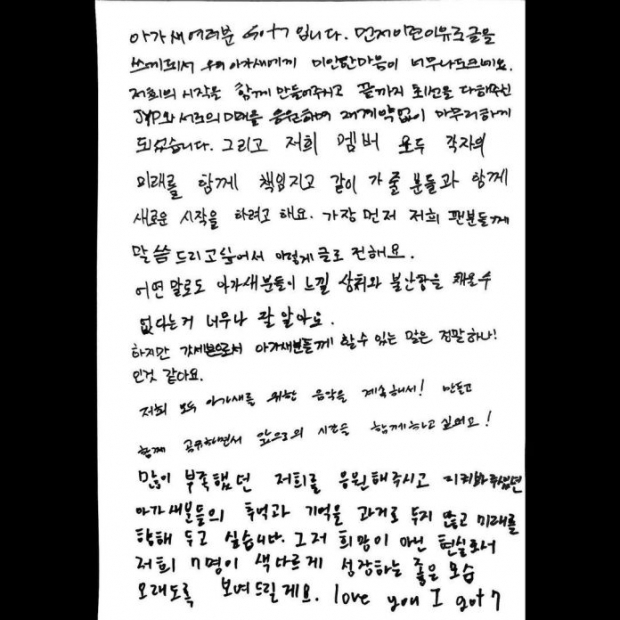 아가새여러분 Got7 입니다. 먼저이런이유로글을
쓰게되서 우리 아가새에게 미안한마음이 너무나도크네요.
저희의 시작을 함께 만들어주시고 끝까지 최선을 다해주신
JYP와 서로의 미래를 응원하며 재계약없이 마무리하게
되었습니다. 그리고 저희 멤버 모두 각자의
미래를 함께 책임지고 같이 가 줄 분들과 함께
새로운 시작을 하려고 해요. 가장 먼저 저희 팬분들께
말씀 드리고싶어서 이렇게 글로 전해요.
어떤 말로도 아가새분들이 느낄 상처와 불안감을 채울수
없다는거 너무나 잘 알아요.
하지만 갓세븐으로서 아가새분들께 할수 있는 말은 정말하나!
인것 같아요.
저희 모두 아가새를 위한 음악을 계속해서! 만들고
함께 공유하면서 앞으로의 시간을 함께하고 싶어요!
많이 부족했던 저희를 응원해주시고 지켜봐주셨던
아가새분들의 추억과 기억을 과거로 두지 않고 미래를
향해 두고 싶습니다. 그저 희망이 아닌 현실로서
저희 7명이 색다르게 성장하는 좋은 모습
오래도록 보여드릴게요. love you I got7